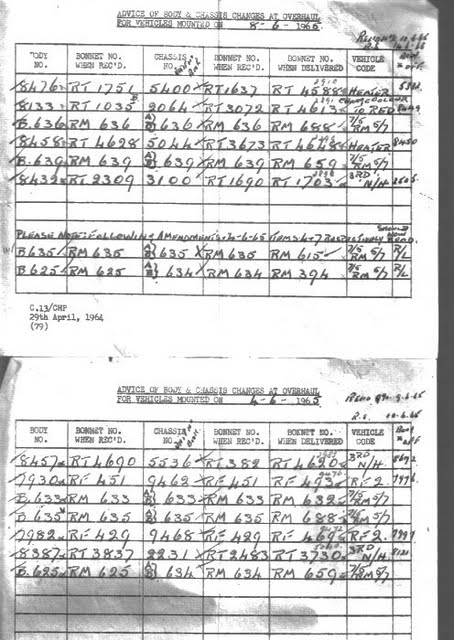 ADVICE OF BODY & CHASSIS CHANGES AT OVERHAUL
FOR VEHICLES MOUNTED ON 8-6-1965
BODY NO. BONNET NO. WHEN REC'D. CHASSIS NO. BONNET NO. WHEN DELIVERED VEHICLE CODE
8476 RT 1751 5400 RT 1637 RT 4588 HEATER
8133 RT 1035 2064 RT 3072 RT 4613 TO RED
B.636 RM 636 A/B 636 RM 636 RM 688 7/5 RM 5/7
8458 RT 4628 5044 RT 3673 RT 4648 HEATER 8450
B.639 RM 639 A/B 639 RM 639 RM 659 7/5 RM 5/7
8432 RT 2309 3100 RT 1690 RT 1703 3RD N/H
PLEASE NOTE: FOLLOWING AMENDMENTS 4-6-65 ITEMS 4+7 RESPECTIVELY SHOULD NOW READ.
B635 RM 635 A/B 635 RM 635 RM 615 7/5 RM 5/7 R/L
B625 RM 625 A/B 634 RM 634 RM 394 7/5 RM 5/7 R/L
C.13/CHP
29th April, 1964
(79)
ADVICE OF BODY & CHASSIS CHANGES AT OVERHAUL
FOR VEHICLES MOUNTED ON 4-6-1965
BODY NO. BONNET NO. WHEN REC'D. CHASSIS NO. BONNET NO. WHEN DELIVERED VEHICLE CODE
8457 RT 4690 5536 RT 382 RT 4620 3RD N/H
7930 RF 451 9462 RF 451 RF 493 RF 2. 7976
B.633 RM 633 A/B 633 RM 633 RM 632 7/5 RM 5/7
B.635 RM 635 A/B 635 RM 635 RM 688 7/5 RM 5/7
7982 RF 429 9468 RF 429 RF 469 RF 2.
8387 RT 3837 2231 RT 2483 RT 3730 3RD N/H
B.625 RM 625 A/B 634 RM 634 RM 659 7/5 RM 5/7